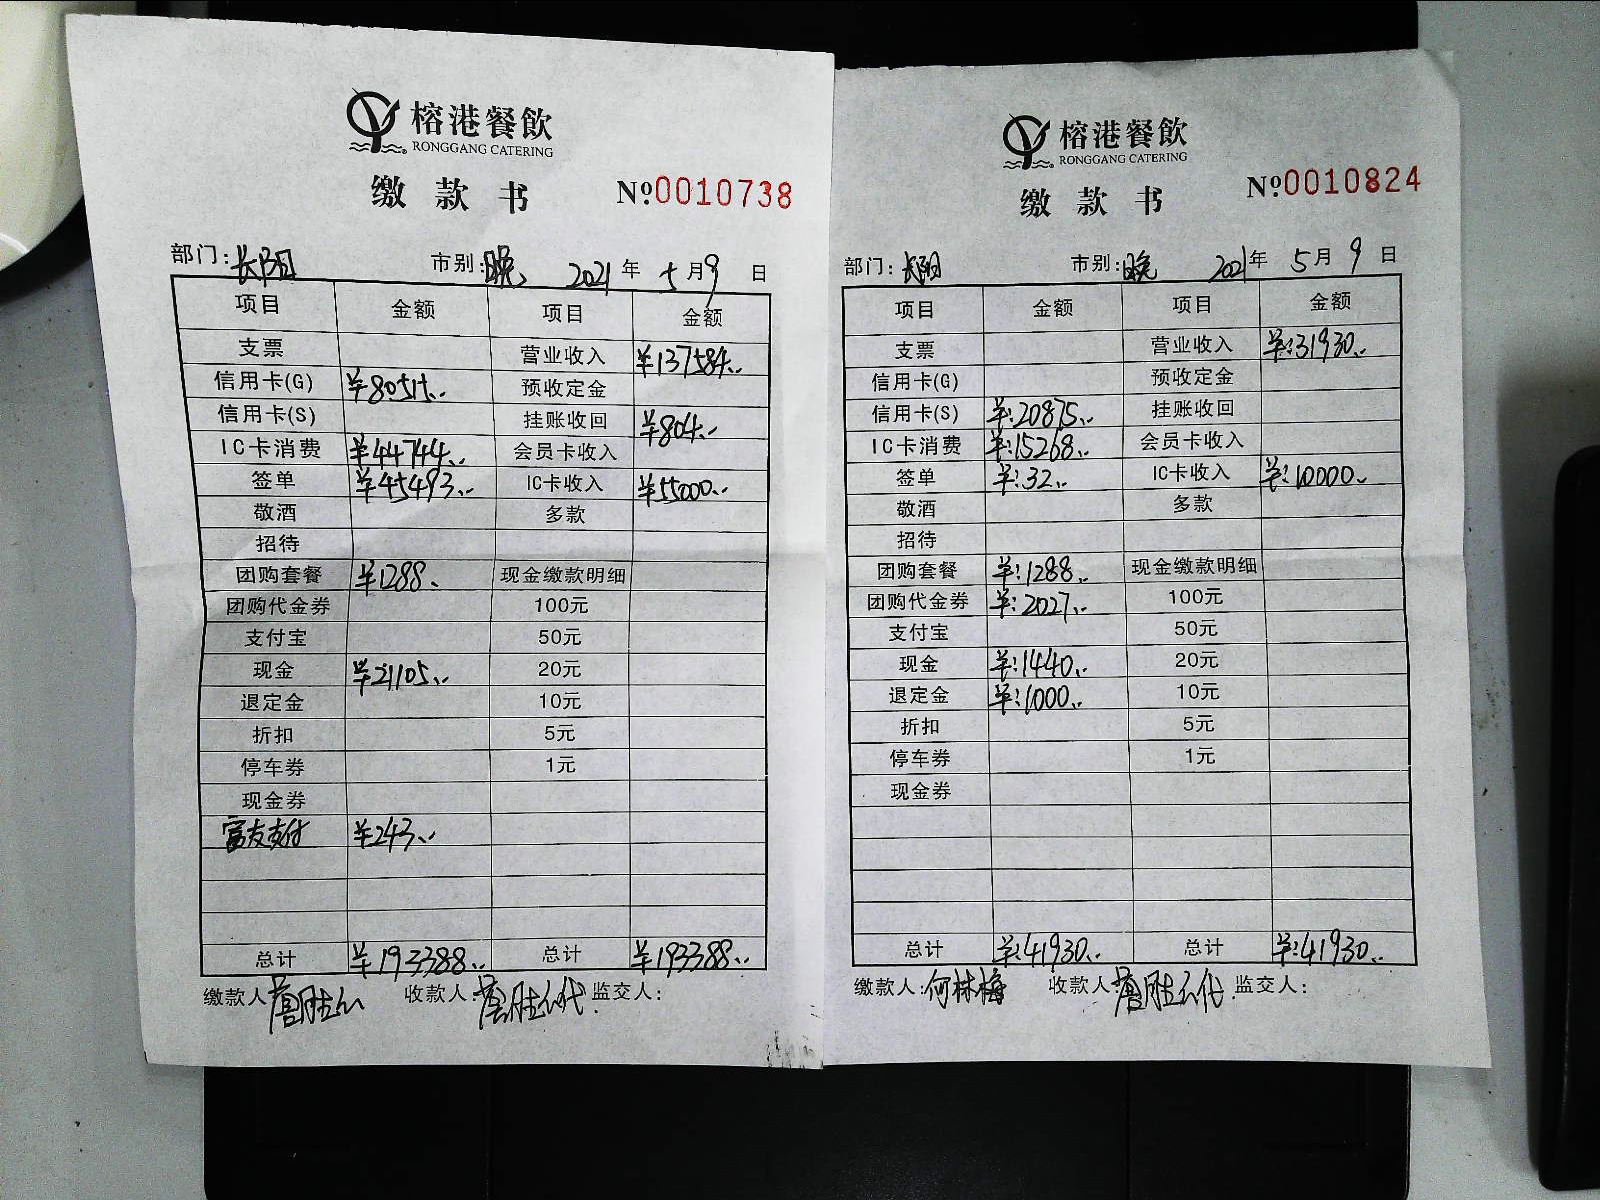 榕港餐飲
RONGGANG CATERING
缴款书 №0010738
部门:长阳 市别:晚 2021年5月9日
项目 金额 项目 金额
支票 营业收入 ¥137584..
信用卡(G) ¥80515.. 预收定金
信用卡(S) 挂账收回 ¥804..
IC卡消费 ¥44744.. 会员卡收入
签单 ¥45493.. IC卡收入 ¥55000..
敬酒 多款
招待
团购套餐 ¥1288. 现金缴款明细
团购代金券 100元
支付宝 50元
现金 ¥21105.. 20元
退定金 10元
折扣 5元
停车券 1元
现金券
富友支付 ¥243..
总计 ¥193388.. 总计 ¥193388..
缴款人 收款人: 监交人:
榕港餐飲
RONGGANG CATERING
缴款书 №0010824
部门:长阳 市别:晚 2021年5月9日
项目 金额 项目 金额
支票 营业收入 ¥:31930..
信用卡(G) 预收定金
信用卡(S) ¥:20875.. 挂账收回
IC卡消费 ¥:15268.. 会员卡收入
签单 ¥:32.. IC卡收入 ¥:10000..
敬酒 多款
招待
团购套餐 ¥:1288.. 现金缴款明细
团购代金券 ¥:2027.. 100元
支付宝 50元
现金 ¥:1440.. 20元
退定金 ¥:1000.. 10元
折扣 5元
停车券 1元
现金券
总计 ¥:41930.. 总计 ¥:41930..
缴款人:何林梅 收款人: 监交人: